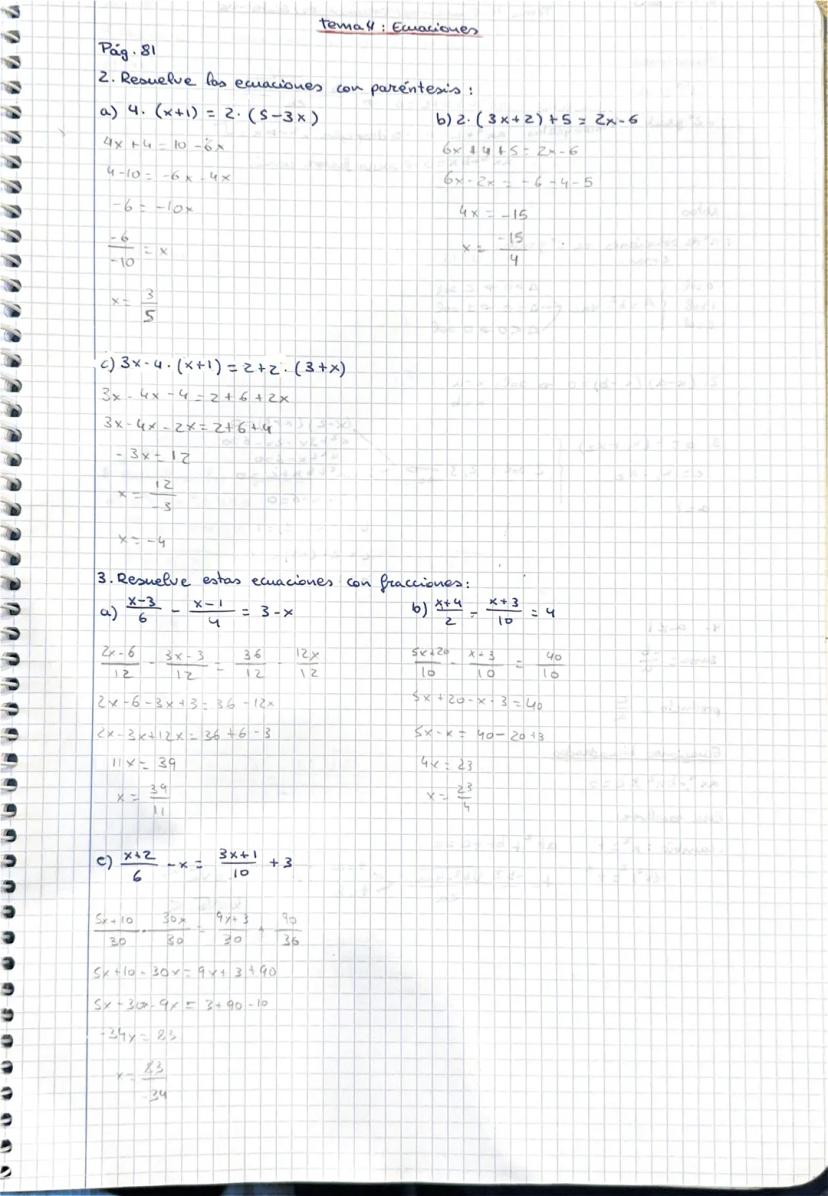 Tema 4: Ecuaciones
Pág. 81
2. Resuelve las ecuaciones con paréntesis:
a) 4·(x+1) = 2·(5-3x)
4x+4 = 10-6x
4-10 = -6x-4x
-6 = -10x
-6/-10 = x
x = 3/5
b) 2·(3x+2)+5 = 2x-6
6x+4+5 = 2x-6
6x-2x = -6-4-5
4x = -15
x = -15/4
c) 3x-4·(x+1) = 2+2·(3+x)
3x-4x-4 = 2+6+2x
3x-4x-2x = 2+6+4
-3x = 12
x = 12/-3
x = -4
3. Resuelve estas ecuaciones con fracciones:
a) x-3/6 - x-1/4 = 3-x
2x-6/12 - 3x-3/12 = 36/12 - 12x/12
2x-6-3x+3 = 36-12x
2x-3x+12x = 36+6-3
11x = 39
x = 39/11
b) x+4/2 - x+3/10 = 4
5x+20/10 - x+3/10 = 40/10
5x+20-x-3 = 40
5x-x = 40-20+3
4x = 23
x = 23/4
c) x+2/6 - x = 3x+1/10 + 3
5x+10/30 - 30x/30 = 9x+3/30 + 90/36
5x+10-30x = 9x+3+90
5x-30x-9x = 3+90-10
-34x = 83
x = 83/-34